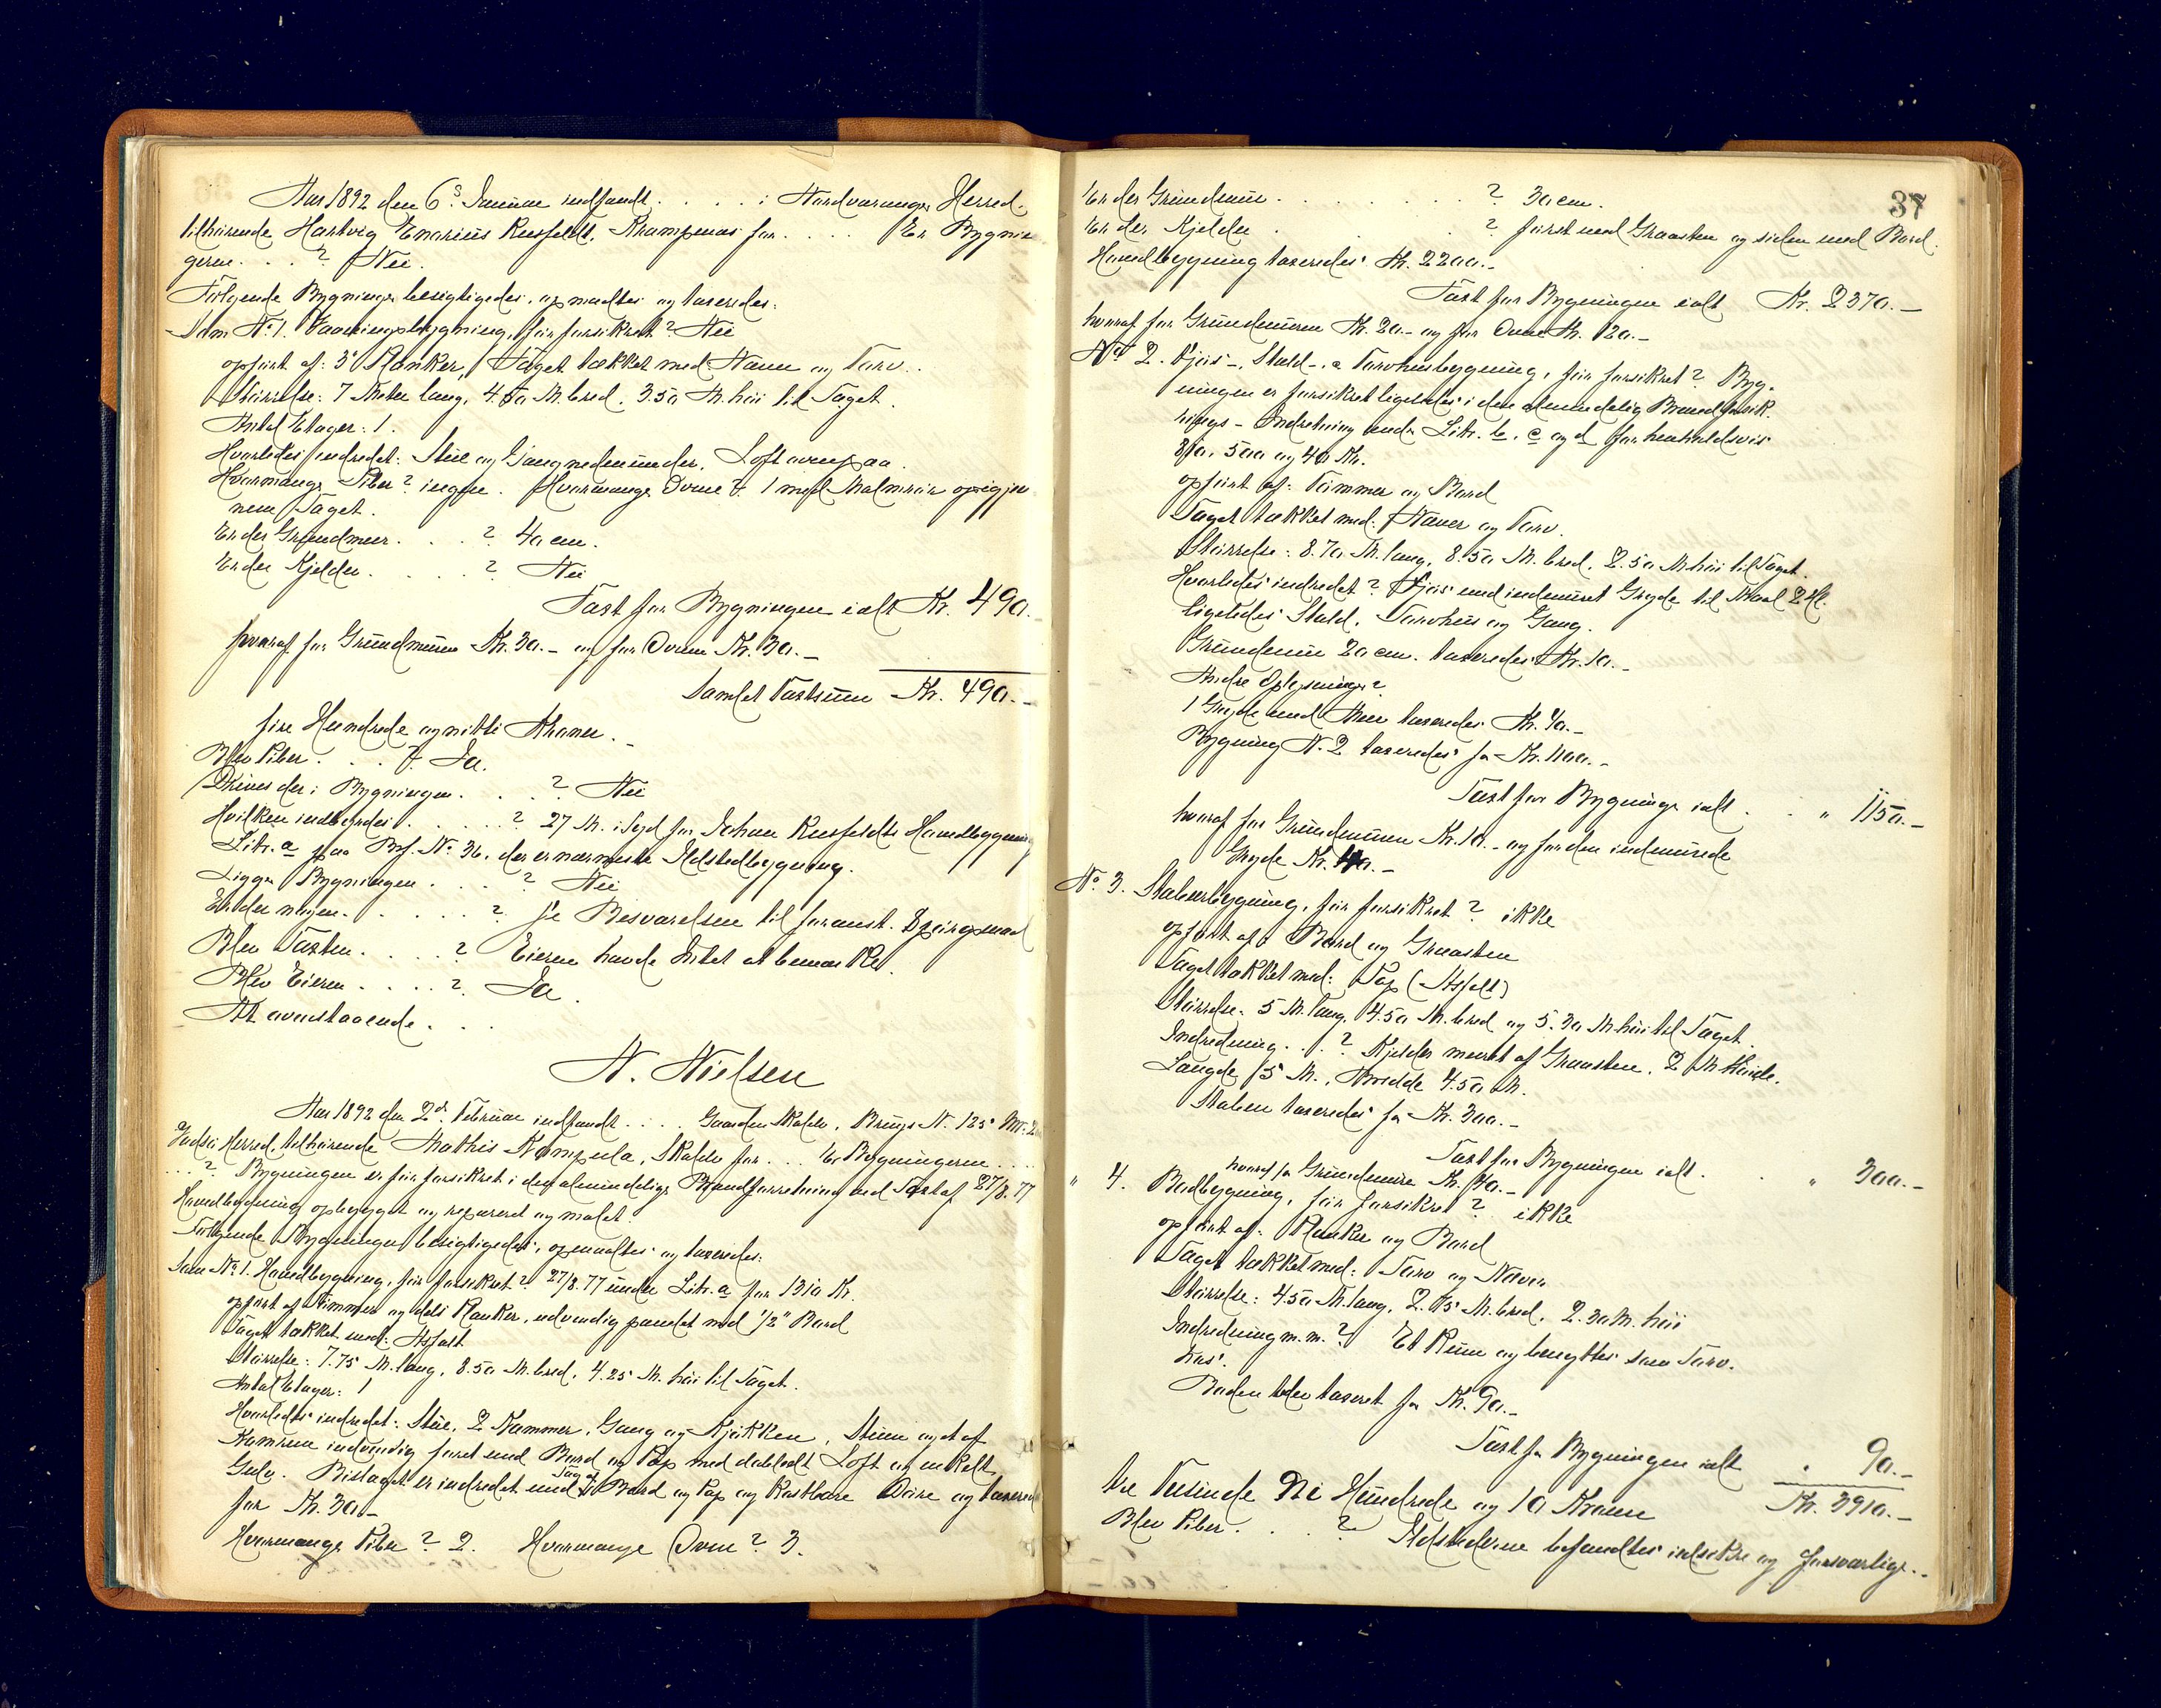 Aar 1892 den 6s Januar indfandt . . . . i Nordvaranger Herred
tilhørende Hartvig Enarius Rusfeldt, Krampenes for . . . . Er Bygnin
gerne . . . ? Nei.
Følgende Bygninger besigtigedes, opmaaltes og taxeredes:
Som No 1. Vaaningsbygning, før forsikret? Nei
opført af: 3" Planker, Taget tækket med Næver og Torv.
Størrelse: 7 Meter lang, 4.50 M. bred, 3.50 M. høi til Taget.
Antal Etager: 1.
Hvorledes indredet: Stue og Gang nedenunder, Loft ovenpaa.
Hvormange Piber? ingen. Hvormange Ovne? 1 med Malmrør opigjen
nem Taget.
Er der Grundmur . . . ? 40 cm.
Er der Kjelder . . . . ? Nei
Taxt for Bygningen ialt Kr. 490.
hvoraf for Grundmuren Kr. 30.- og for Ovnen Kr. 30.-
Samlet Taxtsum Kr. 490.-
fire Hundrede og nitti Kroner.-
Blev Piber . . . ? Ja.
Drives der i Bygningen . . . ? Nei
Hvilken indbyrdes . . . . . ? 27 M. i Syd for Johan Rusfeldts Hovedbygning
Litr. a paa Brf. No 36, der er nærmeste Ildstedbygning.
Ligger Bygningen . . . ? Nei
Er der nogen . . . . . ? Se Besvarelsen til foranst. Spørgsmaal
Blev Taxten . . . . ? Eieren havde Intet at bemærke.
Blev Eieren . . . . ? Ja.
At ovenstaaende . . .
N. Nielsen
Aar 1892 den 2d Februar indfandt . . . . Gaarden Skaleb, Brugs N. 125
Vadsø Herred, tilhørende Mathis Kampula, Skaleb for . . . Er Bygningerne . . . .
. . . ? Bygningen er før forsikret i den almindelige Brandforretning ved Taxt af 27/8. 77
Hovedbygning opbygget og repareret og malet.
Følgende Bygninger besigtigedes, opmaaltes og taxeredes:
Som No 1. Hovedbygning, før forsikret? 27/8. 77 under Litr. a for 1310 Kr.
opført af Tømmer og dels Planker, udvendig panelet med 1/2" Bord
Taget tækket med: Asfalt
Størrelse: 7.75 M. lang, 8.50 M. bred, 4.25 M. høi til Taget.
Antal Etager: 1
Hvorledes indredet: Stue, 2 Kammer, Gang og Kjøkken, Stuen og et af
Kamrene indvendig foret med Bord og Pap med dobbelt Loft og enkelt
Gulv. Bislaget er indredet med Tag af Bord og Pap og Kostbare Døre og taxeret
for Kr. 30.-
Hvormange Piber? 2. Hvormange Ovne? 3.
37
Er der Grundmur . . . . . . . . ? 30 cm.
Er der Kjelder . . . ? først med Graasten og siden med Bord.
Hovedbygning taxeredes Kr. 2200.-
Taxt for Bygningen ialt Kr. 2370.-
hvoraf for Grundmuren Kr. 20.- og for Ovne Kr. 120.-
No 2. Fjøs-, Stald- & Torvhusbygning, før forsikret? Byg-
ningen er forsikret ligeledes i den almindelig Brandforsik-
rings-Indretning under Litr. b, c og d for henholdsvis
310, 500 og 40 Kr.
opført af: Tømmer og Bord
Taget tækket med: Næver og Torv.
Størrelse: 8.70 M. lang, 8.50 M. bred, 2.50 M høi til Taget.
Hvorledes indredet? Fjøs med indmuret Gryde til Maal 2 Hl.
ligeledes Stald, Torvhus og Gang.
Grundmur 20 cm. taxeredes Kr. 10.-
Andre Oplysninger?
1 Gryde med Mur taxeredes Kr. 40.-
Bygning N. 2 taxeredes for Kr. 1100.-
Taxt for Bygninge ialt . . " 1150.-
hvoraf for Grundmuren Kr. 10.- og for den indmurede
Gryde Kr. 40.-
No. 3. Staburbygning, før forsikret? ikke
opført af: Bord og Graasten
Taget tækket med: Pap (Asfalt)
Størrelse: 5 M. lang, 4.50 M. bred og 5.30 M høi til Taget.
Indredning . . . ? Kjelder muret af Graasten, 2 M Høide.
Længde 5 M., Bredde 4.50 M.
Staburet taxeredes for Kr. 300.-
Taxt for Bygningen ialt . . " 300.-
hvoraf for Grundmure Kr. 40.-
" 4. Bodbygning, før forsikret? ikke
opført af: Planker og Bord
Taget tækket med: Torv og Næver
Størrelse: 4.50 M. lang, 2.75 M. bred, 2.30 M. høi
Indredning m.m.? Et Rum og benyttes som Torv-
hus.
Boden blev taxeret for Kr. 90.-
Taxt for Bygningen ialt " 90.-
Kr. 3910.-
tre Tusinde Ni Hundrede og 10 Kroner
Blev Piber . . . ? Ildstederne befandtes ildsikre og forsvarlige.-